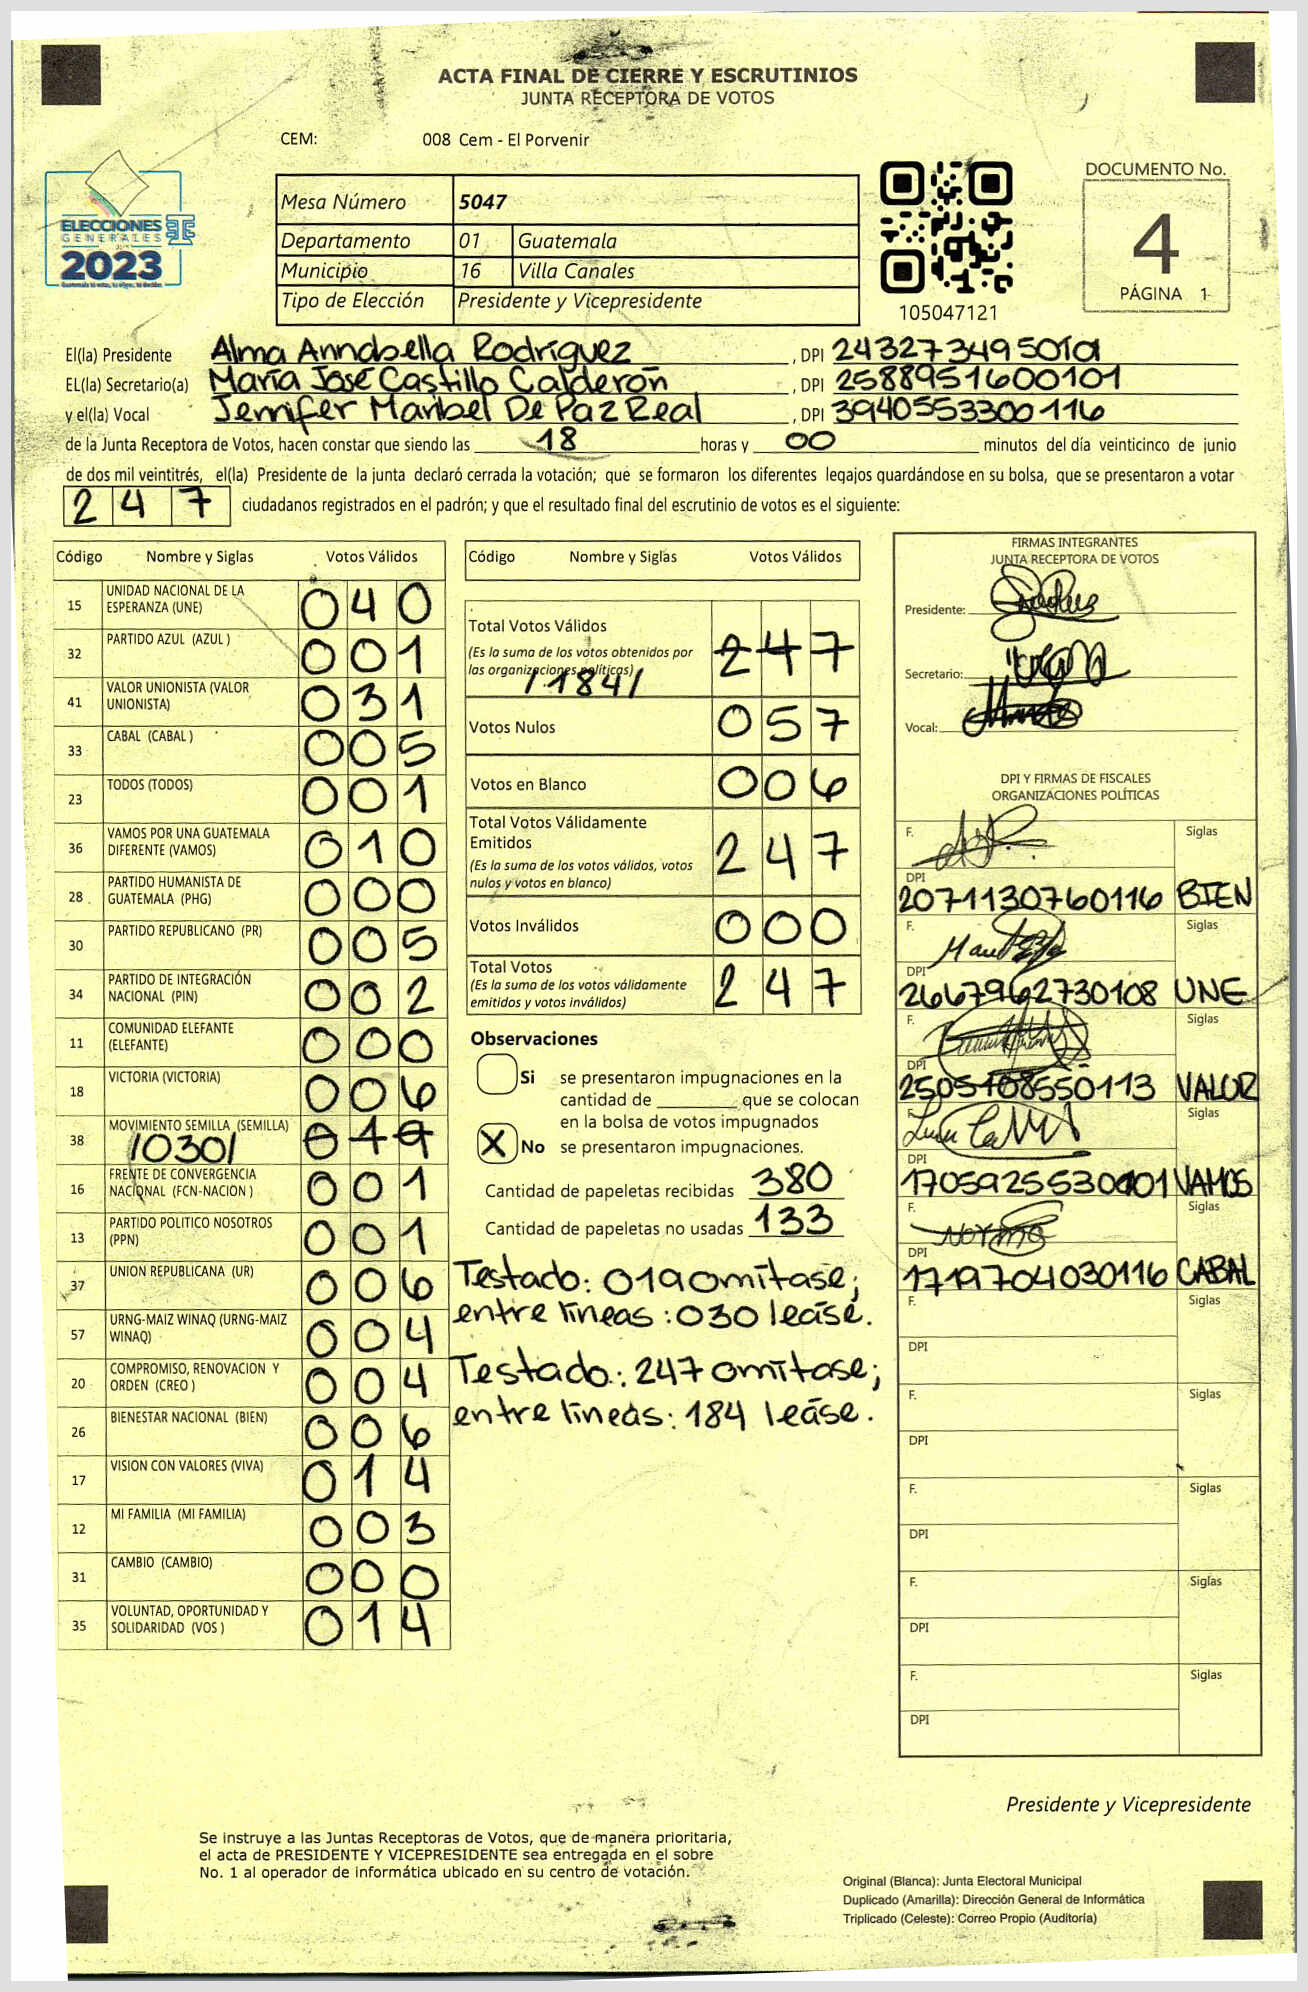 ACTA FINAL DE CIERRE Y ESCRUTINIOS
JUNTA RECEPTORA DE VOTOS
CEM: 008 Cem - El Porvenir
ELECCIONES
GENERALES
2023
Mesa Número 5047
Departamento 01 Guatemala
Municipio 16 Villa Canales
Tipo de Elección Presidente y Vicepresidente
105047121
DOCUMENTO No.
4
PÁGINA 1
El(la) Presidente Alma Annabella Rodríguez , DPI
EL(la) Secretario(a) María José Castillo Calderón , DPI 2588951600101
y el(la) Vocal Jennifer Maribel De Paz Real , DPI 3940553300116
de la Junta Receptora de Votos, hacen constar que siendo las 18 horas y 00 minutos del día veinticinco de junio
de dos mil veintitrés, el(la) Presidente de la junta declaró cerrada la votación; que se formaron los diferentes legajos guardándose en su bolsa, que se presentaron a votar
247 ciudadanos registrados en el padrón; y que el resultado final del escrutinio de votos es el siguiente:
Código Nombre y Siglas Votos Válidos
15 UNIDAD NACIONAL DE LA ESPERANZA (UNE) 040
32 PARTIDO AZUL (AZUL ) 001
41 VALOR UNIONISTA (VALOR UNIONISTA) 031
33 CABAL (CABAL ) 005
23 TODOS (TODOS) 001
36 VAMOS POR UNA GUATEMALA DIFERENTE (VAMOS) 010
28 PARTIDO HUMANISTA DE GUATEMALA (PHG) 000
30 PARTIDO REPUBLICANO (PR) 005
34 PARTIDO DE INTEGRACIÓN NACIONAL (PIN) 002
11 COMUNIDAD ELEFANTE (ELEFANTE) 000
18 VICTORIA (VICTORIA) 006
38 MOVIMIENTO SEMILLA (SEMILLA) /030/ 019
16 FRENTE DE CONVERGENCIA NACIONAL (FCN-NACION ) 001
13 PARTIDO POLITICO NOSOTROS (PPN) 001
37 UNION REPUBLICANA (UR) 006
57 URNG-MAIZ WINAQ (URNG-MAIZ WINAQ) 004
20 COMPROMISO, RENOVACION Y ORDEN (CREO ) 004
26 BIENESTAR NACIONAL (BIEN) 006
17 VISION CON VALORES (VIVA) 014
12 MI FAMILIA (MI FAMILIA) 003
31 CAMBIO (CAMBIO) 000
35 VOLUNTAD, OPORTUNIDAD Y SOLIDARIDAD (VOS ) 014
Código Nombre y Siglas Votos Válidos
Total Votos Válidos 247
(Es la suma de los votos obtenidos por
las organizaciones políticas)
/184/
Votos Nulos 057
Votos en Blanco 006
Total Votos Válidamente
Emitidos 247
(Es la suma de los votos válidos, votos
nulos y votos en blanco)
Votos Inválidos 000
Total Votos 247
(Es la suma de los votos válidamente
emitidos y votos inválidos)
Observaciones
Si se presentaron impugnaciones en la
cantidad de ________ que se colocan
en la bolsa de votos impugnados
X No se presentaron impugnaciones.
Cantidad de papeletas recibidas 380
Cantidad de papeletas no usadas 133
Testado: 019 omítase;
entre líneas: 030 lease.
Testado: 247 omítase;
entre líneas: 184 léase.
FIRMAS INTEGRANTES
JUNTA RECEPTORA DE VOTOS
Presidente:
Secretario:
Vocal:
DPI Y FIRMAS DE FISCALES
ORGANIZACIONES POLÍTICAS
F. Siglas
DPI
2071130760116 BIEN
F. Siglas
DPI
2667962730108 UNE
F. Siglas
DPI
2505108550113 VALOR
F. Siglas
DPI
VAMOS
F. Siglas
DPI
1719704030116 CABAL
F. Siglas
DPI
F. Siglas
DPI
F. Siglas
DPI
F. Siglas
DPI
F. Siglas
DPI
Presidente y Vicepresidente
Se instruye a las Juntas Receptoras de Votos, que de manera prioritaria,
el acta de PRESIDENTE Y VICEPRESIDENTE sea entregada en el sobre
No. 1 al operador de informática ubicado en su centro de votación.
Original (Blanca): Junta Electoral Municipal
Duplicado (Amarilla): Dirección General de Informática
Triplicado (Celeste): Correo Propio (Auditoría)